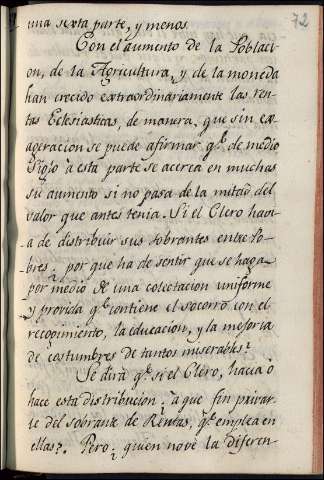 72
una sexta parte, y menos.
Con el aumento de la Poblaci-
on, de la Agricultura, y de la moneda
han crecido extraordinariamente las ren-
tas Eclesiasticas, de manera, que sin ex-
ageración se puede afirmar q.e de medio
Siglo à esta parte se acerca en muchas
su aumento si no pasa de la mitad del
valor que antes tenia. Si el Clero havi-
a de distribuir sus sobrantes entre Po-
bres; por que ha de sentir que se haga
por medio de una colectacion uniforme
y provida q.e contiene el socorro con el
recogimiento, la educacion, y la mejoria
de costumbres de tantos miserables?
Se dirà q.e si el Clero, hacia ò
hace esta distribucion, à que fin privar-
le del sobrante de Rentas, q.e emplea en
ellas?. Pero; quien no vè la diferen-